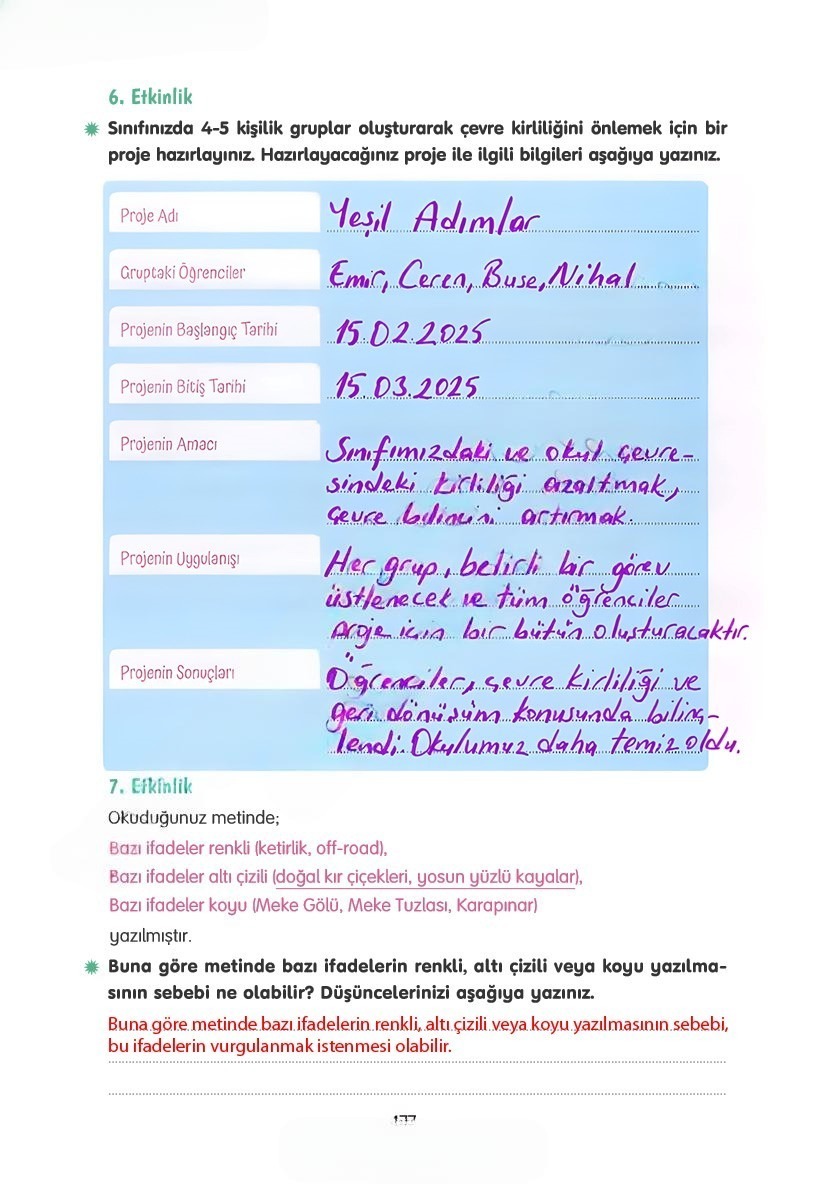 6. Etkinlik
Sınıfınızda 4-5 kişilik gruplar oluşturarak çevre kirliliğini önlemek için bir
proje hazırlayınız. Hazırlayacağınız proje ile ilgili bilgileri aşağıya yazınız.
Proje Adı Yeşil Adımlar
Gruptaki Öğrenciler Emir, Ceren, Buse, Nihal
Projenin Başlangıç Tarihi 15.02.2025
Projenin Bitiş Tarihi 15.03.2025
Projenin Amacı Sınıfımızdaki ve okul çevre-
sindeki kirliliği azaltmak,
çevre bilincini artırmak.
Projenin Uygulanışı Her grup, belirli bir görev
üstlenecek ve tüm öğrenciler
proje için bir bütün oluşturacaktır.
Projenin Sonuçları Öğrenciler, çevre kirliliği ve
geri dönüşüm konusunda bilinç-
lendi. Okulumuz daha temiz oldu.
7. Etkinlik
Okuduğunuz metinde;
Bazı ifadeler renkli (ketirlik, off-road),
Bazı ifadeler altı çizili (doğal kır çiçekleri, yosun yüzlü kayalar),
Bazı ifadeler koyu (Meke Gölü, Meke Tuzlası, Karapınar)
yazılmıştır.
Buna göre metinde bazı ifadelerin renkli, altı çizili veya koyu yazılma-
sının sebebi ne olabilir? Düşüncelerinizi aşağıya yazınız.
Buna göre metinde bazı ifadelerin renkli, altı çizili veya koyu yazılmasının sebebi,
bu ifadelerin vurgulanmak istenmesi olabilir.